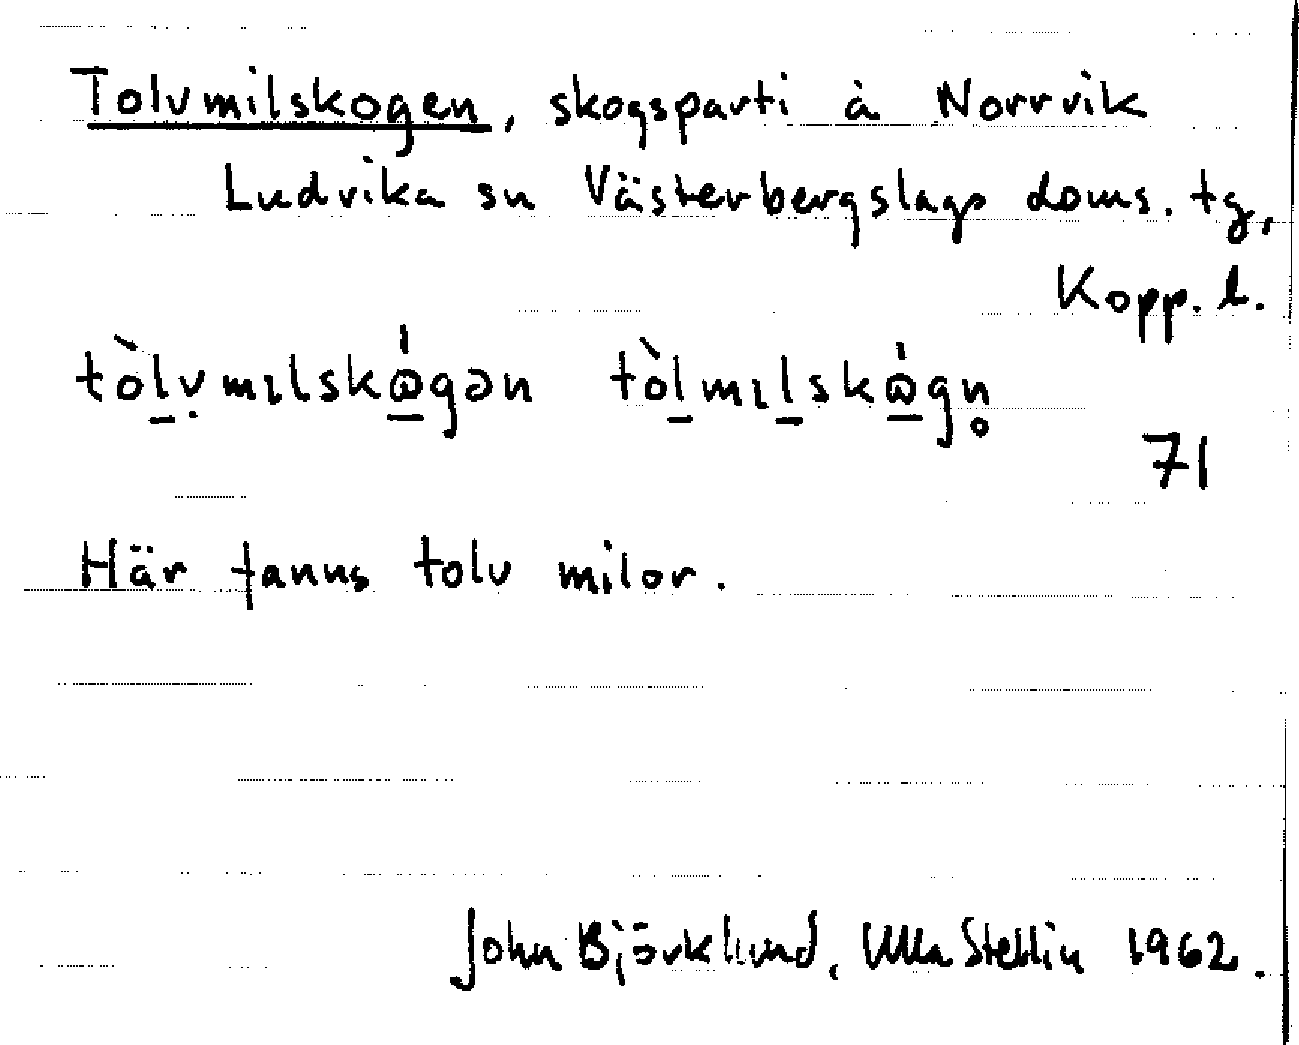 Tolvmilskogen, skogsparti å Norrvik
Ludvika sn Västerbergslags doms. tg,
Kopp. l.
tòl̠ṿmɪlskώ̠gən tòl̠mɪl̠skώ̠gn̥
71
Här fanns tolv milor.
John Björklund, Ulla Stellin 1962.